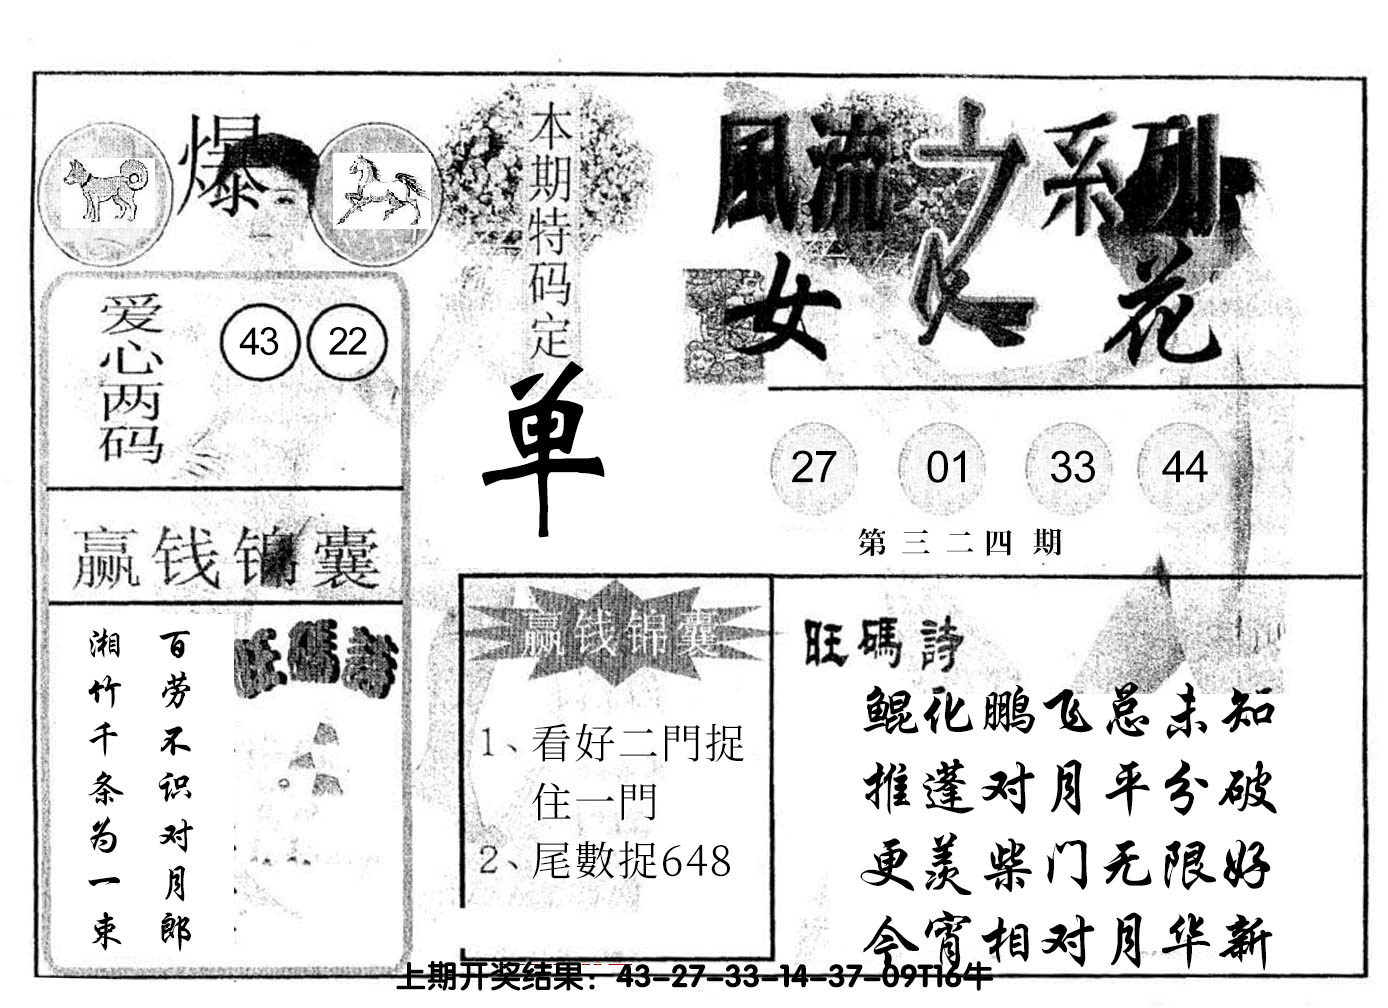 爆
爱心两码
43 22
赢钱锦囊
百劳不识对月郎
湘竹千条为一束
旺碼詩
本期特码定
单
風流之系列
女人花
27 01 33 44
第三二四期
赢钱锦囊
1、看好二門捉
住一門
2、尾數捉648
旺碼詩
鲲化鹏飞总未知
推蓬对月平分破
更羡柴门无限好
今宵相对月华新
上期开奖结果：43-27-33-14-37-09T16牛